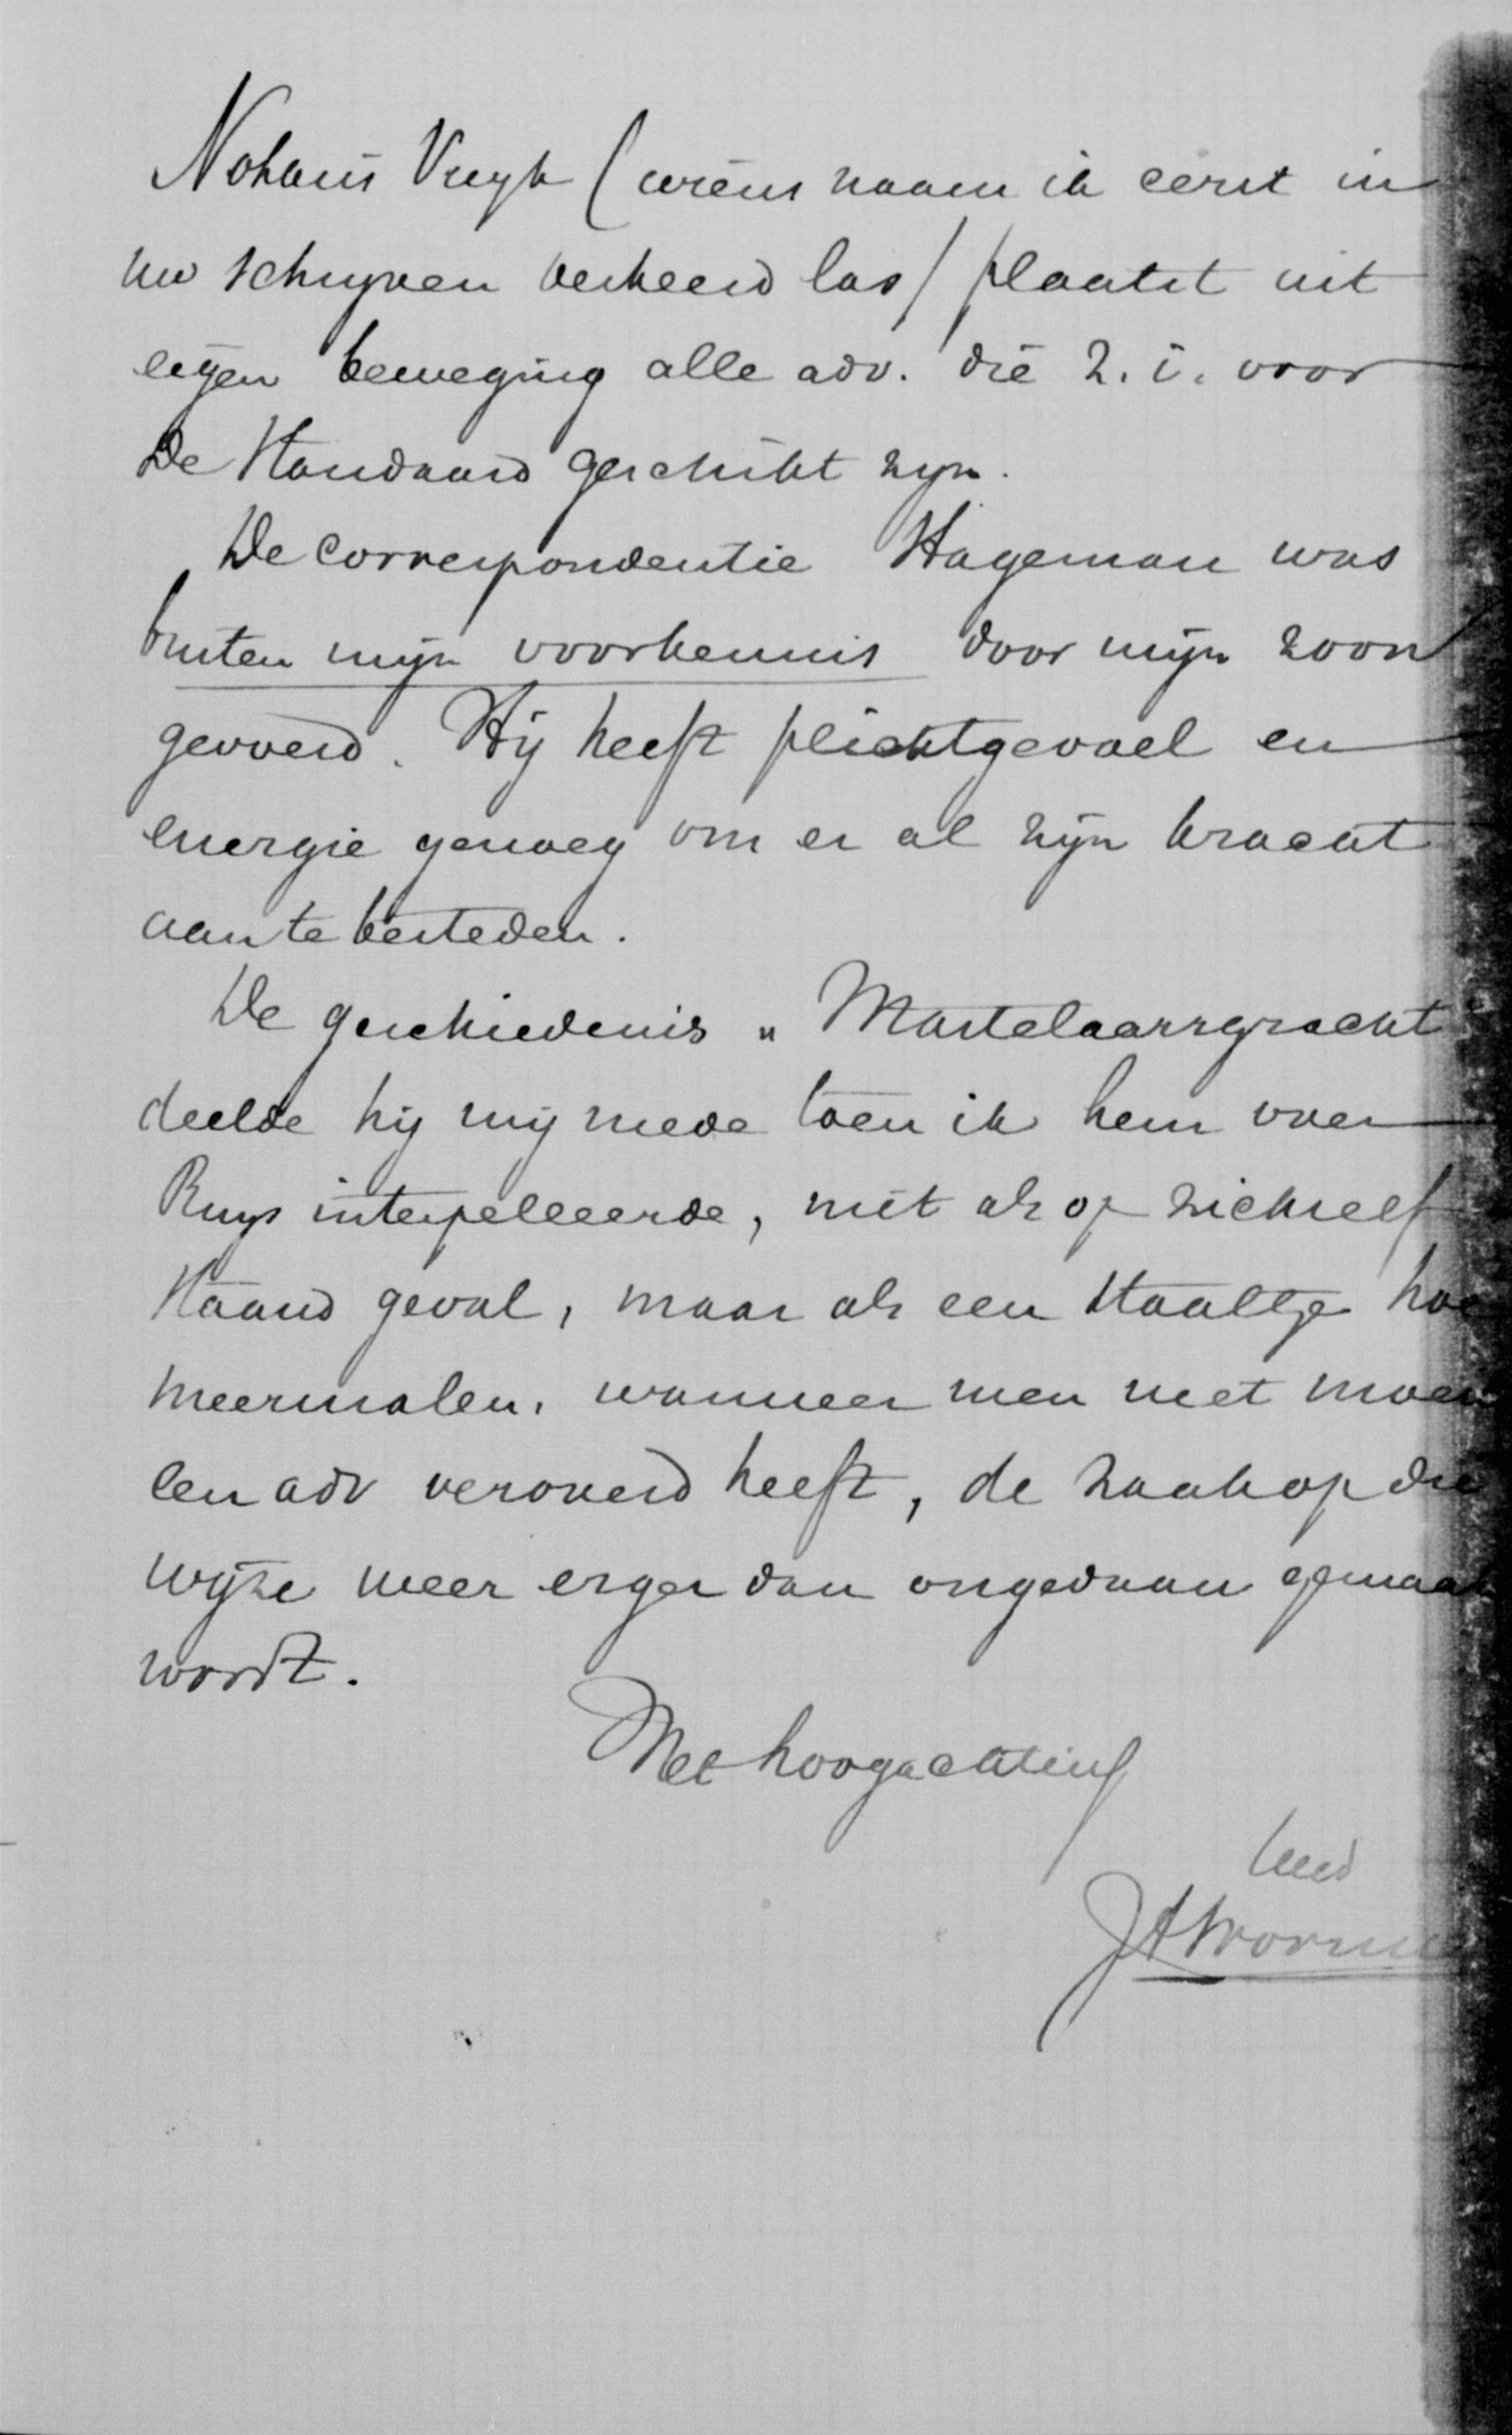 Notaris Vrugh (wiens naam ik eerst in
uw schrijven verkeerd las) plaatst uit
eigen beweging alle adv. die z. i. voor
De Standaard geschikt zijn.
De correspondentie Hageman was
buiten mijn voorkennis door mijn zoon
gevoerd. Hij heeft plichtgevoel en
energie genoeg om er al zijn kracht
aan te besteden.
De geschiedenis „Martelaarsgracht"
deelde hij mij mede toen ik hem over
Ruys interpelleerde, niet als op zichzelf
staand geval, maar als een staaltje hoe
meermalen, wanneer men met moei
een adv veroverd heeft, de zaak op die
wijze weer erger dan ongedaan gemaa
wordt.
Met hoogachting
JAWorms